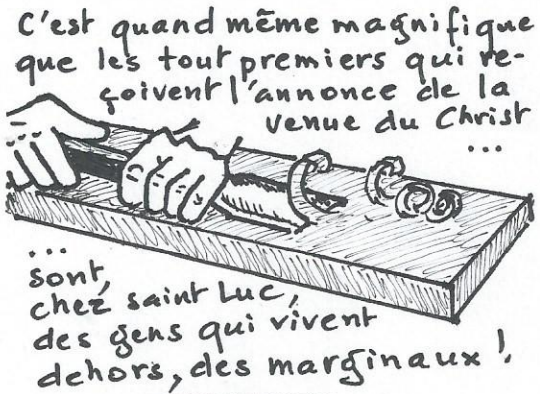 C'est quand même magnifique
que les tout premiers qui re-
çoivent l'annonce de la
venue du Christ
...
...
sont,
chez saint Luc,
des gens qui vivent
dehors, des marginaux !